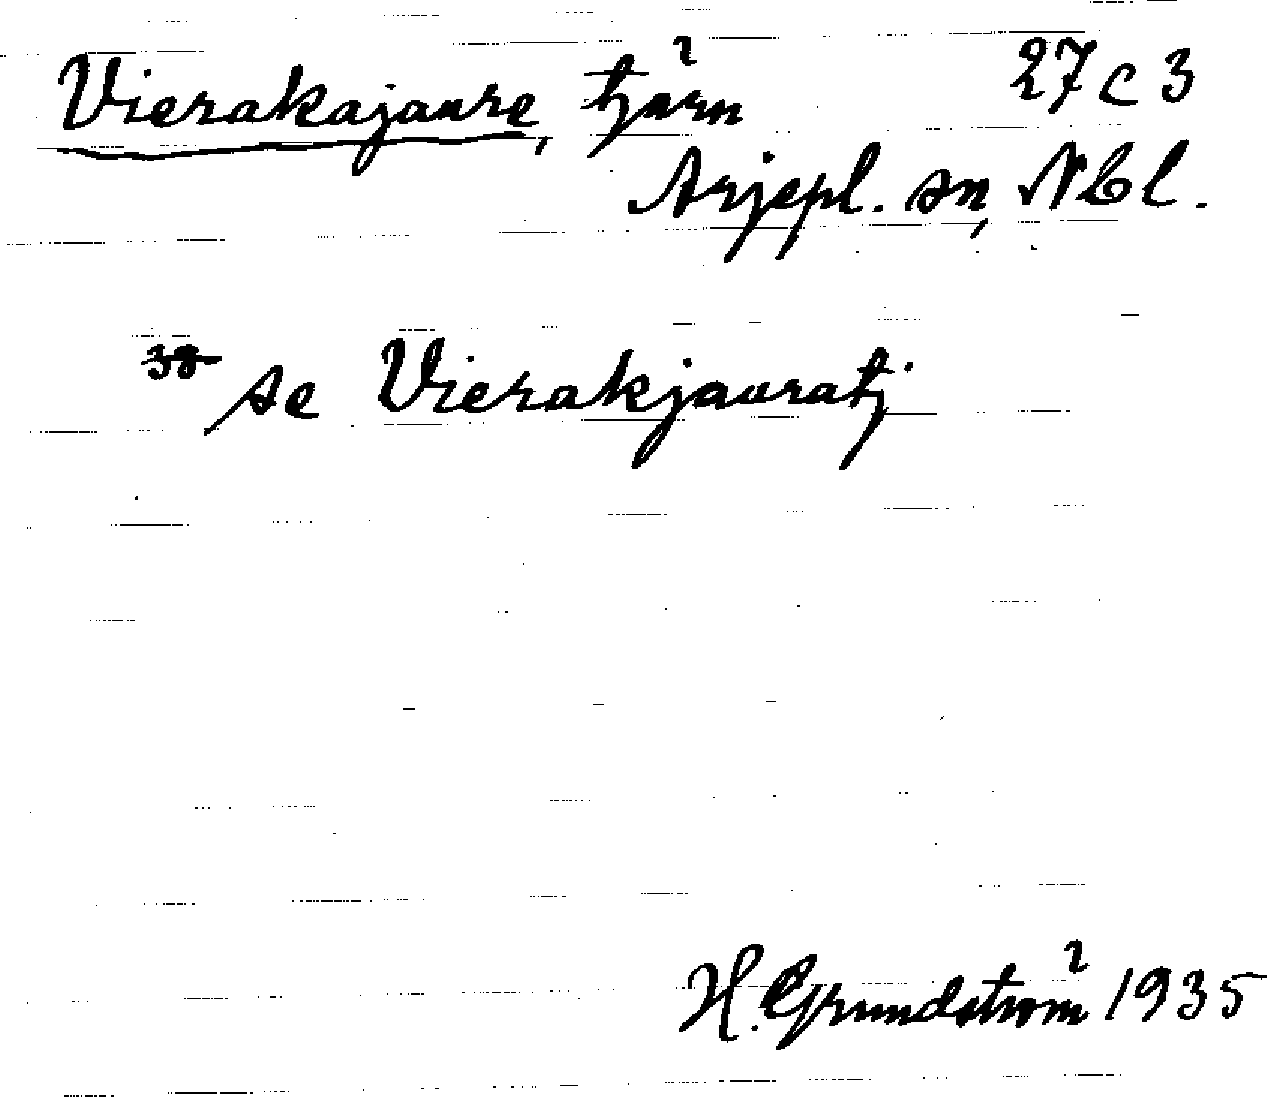 Vierakajaure, tjärn 27 c 3
Arjepl. sn, Nbl.
se Vierakjauratj
H. Grundström 1935